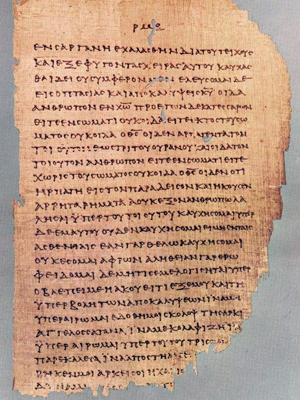 ΕΝ ϹΑΡΓΑΝΗ ΕΧΑΛΑϹΘΗΝ ΔΙΑ ΤΟΥ ΤΕΙΧΟΥϹ
ΚΑΙ ΕΞΕΦΥΓΟΝ ΤΑϹ ΧΕΙΡΑϹ ΑΥΤΟΥ ΚΑΥΧΑϹ
ΘΑΙ ΔΕΙ ΟΥ ϹΥΜΦΕΡΟΝ ΜΕΝ ΕΛΕΥϹΟΜΑΙ ΔΕ
ΕΙϹ ΟΠΤΑϹΙΑϹ ΚΑΙ ΑΠΟΚΑΛΥΨΕΙϹ Κ̅Υ̅ ΟΙΔΑ
ΑΝΘΡΩΠΟΝ ΕΝ Χ̅Ρ̅Ω̅ ΠΡΟ ΕΤΩΝ ΔΕΚΑΤΕϹϹΑΡΩΝ
ΕΙΤΕ ΕΝ ϹΩΜΑΤΙ ΟΥΚ ΟΙΔΑ ΕΙΤΕ ΕΚΤΟϹ ΤΟΥ ϹΩ
ΜΑΤΟϹ ΟΥΚ ΟΙΔΑ Ο Θ̅Ϲ̅ ΟΙΔΕΝ ΑΡΠΑΓΕΝΤΑ ΤΟΝ
ΤΟΙΟΥΤΟΝ ΕΩϹ ΤΡΙΤΟΥ ΟΥΡΑΝΟΥ ΚΑΙ ΟΙΔΑ ΤΟΝ
ΤΟΙΟΥΤΟΝ ΑΝΘΡΩΠΟΝ ΕΙΤΕ ΕΝ ϹΩΜΑΤΙ ΕΙΤΕ
ΧΩΡΙϹ ΤΟΥ ϹΩΜΑΤΟϹ ΟΥΚ ΟΙΔΑ Ο Θ̅Ϲ̅ ΟΙΔΕΝ ΟΤΙ
ΗΡΠΑΓΗ ΕΙϹ ΤΟΝ ΠΑΡΑΔΕΙϹΟΝ ΚΑΙ ΗΚΟΥϹΕΝ
ΑΡΡΗΤΑ ΡΗΜΑΤΑ Α ΟΥΚ ΕΞΟΝ ΑΝΘΡΩΠΩ ΛΑ
ΛΗϹΑΙ ΥΠΕΡ ΤΟΥ ΤΟΙΟΥΤΟΥ ΚΑΥΧΗϹΟΜΑΙ ΥΠΕΡ
ΔΕ ΕΜΑΥΤΟΥ ΟΥΔΕΝ ΚΑΥΧΗϹΟΜΑΙ ΕΙ ΜΗ ΕΝ ΤΑΙϹ
ΑϹΘΕΝΕΙΑΙϹ ΕΑΝ ΓΑΡ ΘΕΛΩ ΚΑΥΧΗϹΟΜΑΙ
ΟΥΚ ΕϹΟΜΑΙ ΑΦΡΩΝ ΑΛΗΘΕΙΑΝ ΓΑΡ ΕΡΩ
ΦΕΙΔΟΜΑΙ ΔΕ ΜΗ ΤΙϹ ΕΜΕ ΛΟΓΙϹΗΤΑΙ ΥΠΕΡ
Ο ΒΛΕΠΕΙ ΜΕ Η ΑΚΟΥΕΙ ΤΙ ΕΞ ΕΜΟΥ ΚΑΙ ΤΗ
ΥΠΕΡΒΟΛΗ ΤΩΝ ΑΠΟΚΑΛΥΨΕΩΝ ΙΝΑ ΜΗ
ΥΠΕΡΑΙΡΩΜΑΙ ΕΔΟΘΗ ΜΟΙ ϹΚΟΛΟΨ ΤΗ ϹΑΡΚΙ
ΑΓΓΕΛΟϹ ϹΑΤΑΝΑ ΙΝΑ ΜΕ ΚΟΛΑΦΙΖΗ ΙΝΑ
ΥΠΕΡΑΙΡΩΜΑΙ ΥΠΕΡ ΤΟΥΤΟΥ ΤΡΙϹ ΤΟΝ
ΠΑΡΕΚΑΛΕϹΑ ΙΝΑ ΑΠΟϹΤΗ
ΡΗΚΕΝ ΜΟΙ ΑΡΚΕΙ ϹΟΙ Η